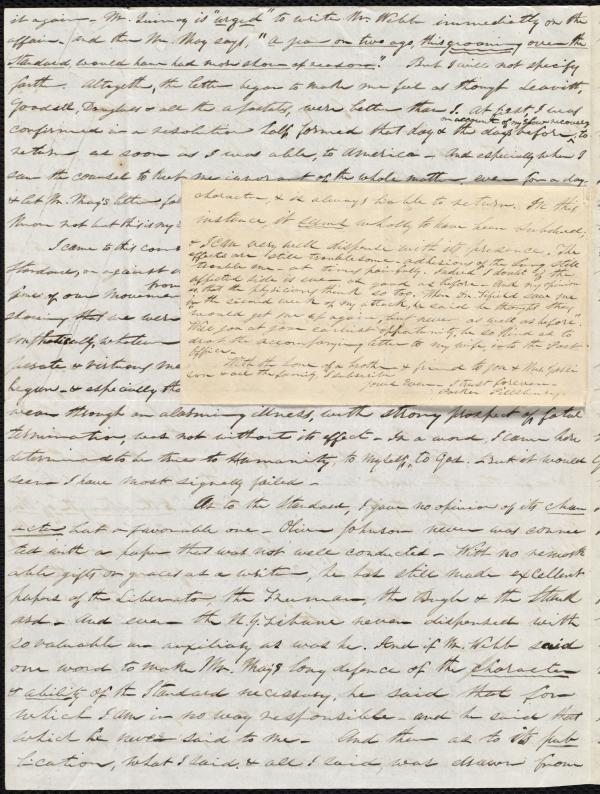 it again - Mr. Quincy is "urged" to write Mr. Webb immediately on the
affair. And then Mr. May says, "A year or two ago, this groaning over the
Standard would have had more show of reason." But I will not specify
farther. Altogether, the letter began to make me feel as though Leavitt,
Goodell, Douglass & all the apostates, were better than I. At past, I was
on account of my slow recovery
confirmed in a resolution half formed that day & the days before, to
return as soon as I was able, to America - And especially when I
saw the counsel to keep me ignorant of the whole matter, even for a day.
& let Mr. May's letter
know not but this is my
I came to this con
Standard, or against
from
some of our movemen
showing that we were
emphatically, whatever
passate & virtuous me
begun - & especially th
character, & is always liable to return. In this
instance, it seems wholly to have been subdued,
& I can very well dispense with its presence. The
effects are still troublesome - adhesions of the lung still
trouble me - at times painfully. Indeed I doubt if the
affected side is ever as good as before - And my opinion
is that the physicians think so too. When Dr. saw me
by the second week of my attack, he said he thought they
would get me up again, "but never as well as before."
Will you at your earliest opportunity, be so kind as to
drop the accompanying letter to my wife, into the Post
Office -
With the love of a brother & friend to you & Mrs. Garri
son & all the family, I subscribe
Yours Ever - I trust forever -
Parker Pillsbury
wean through an alarming illness, with strong prospect of fatal
termination, was not without its effect - In a word, I came here
determined to be true to Humanity, to myself, to God. But it would
seem I have most signally failed -
As to the Standard, I gave no opinion of its char
acter but a favorable one - Oliver Johnson never was connec
ted with a paper that was not well conducted - With no remark
able gifts or graces as a writer, he has still made excellent
papers of the Liberator, the Freeman, the Bugle & the Stand
ard - And even the N.Y. Tribune never dispensed with
so valuable an auxiliary as was he. And if Mr. Webb said
one word to make Mr. May's long defence of the character
& ability of the Standard necessary, he said that for
which I am in no way responsible - and he said that
which he never said to me - And then as to its pub
lication, what I said, & all I said, was drawn from